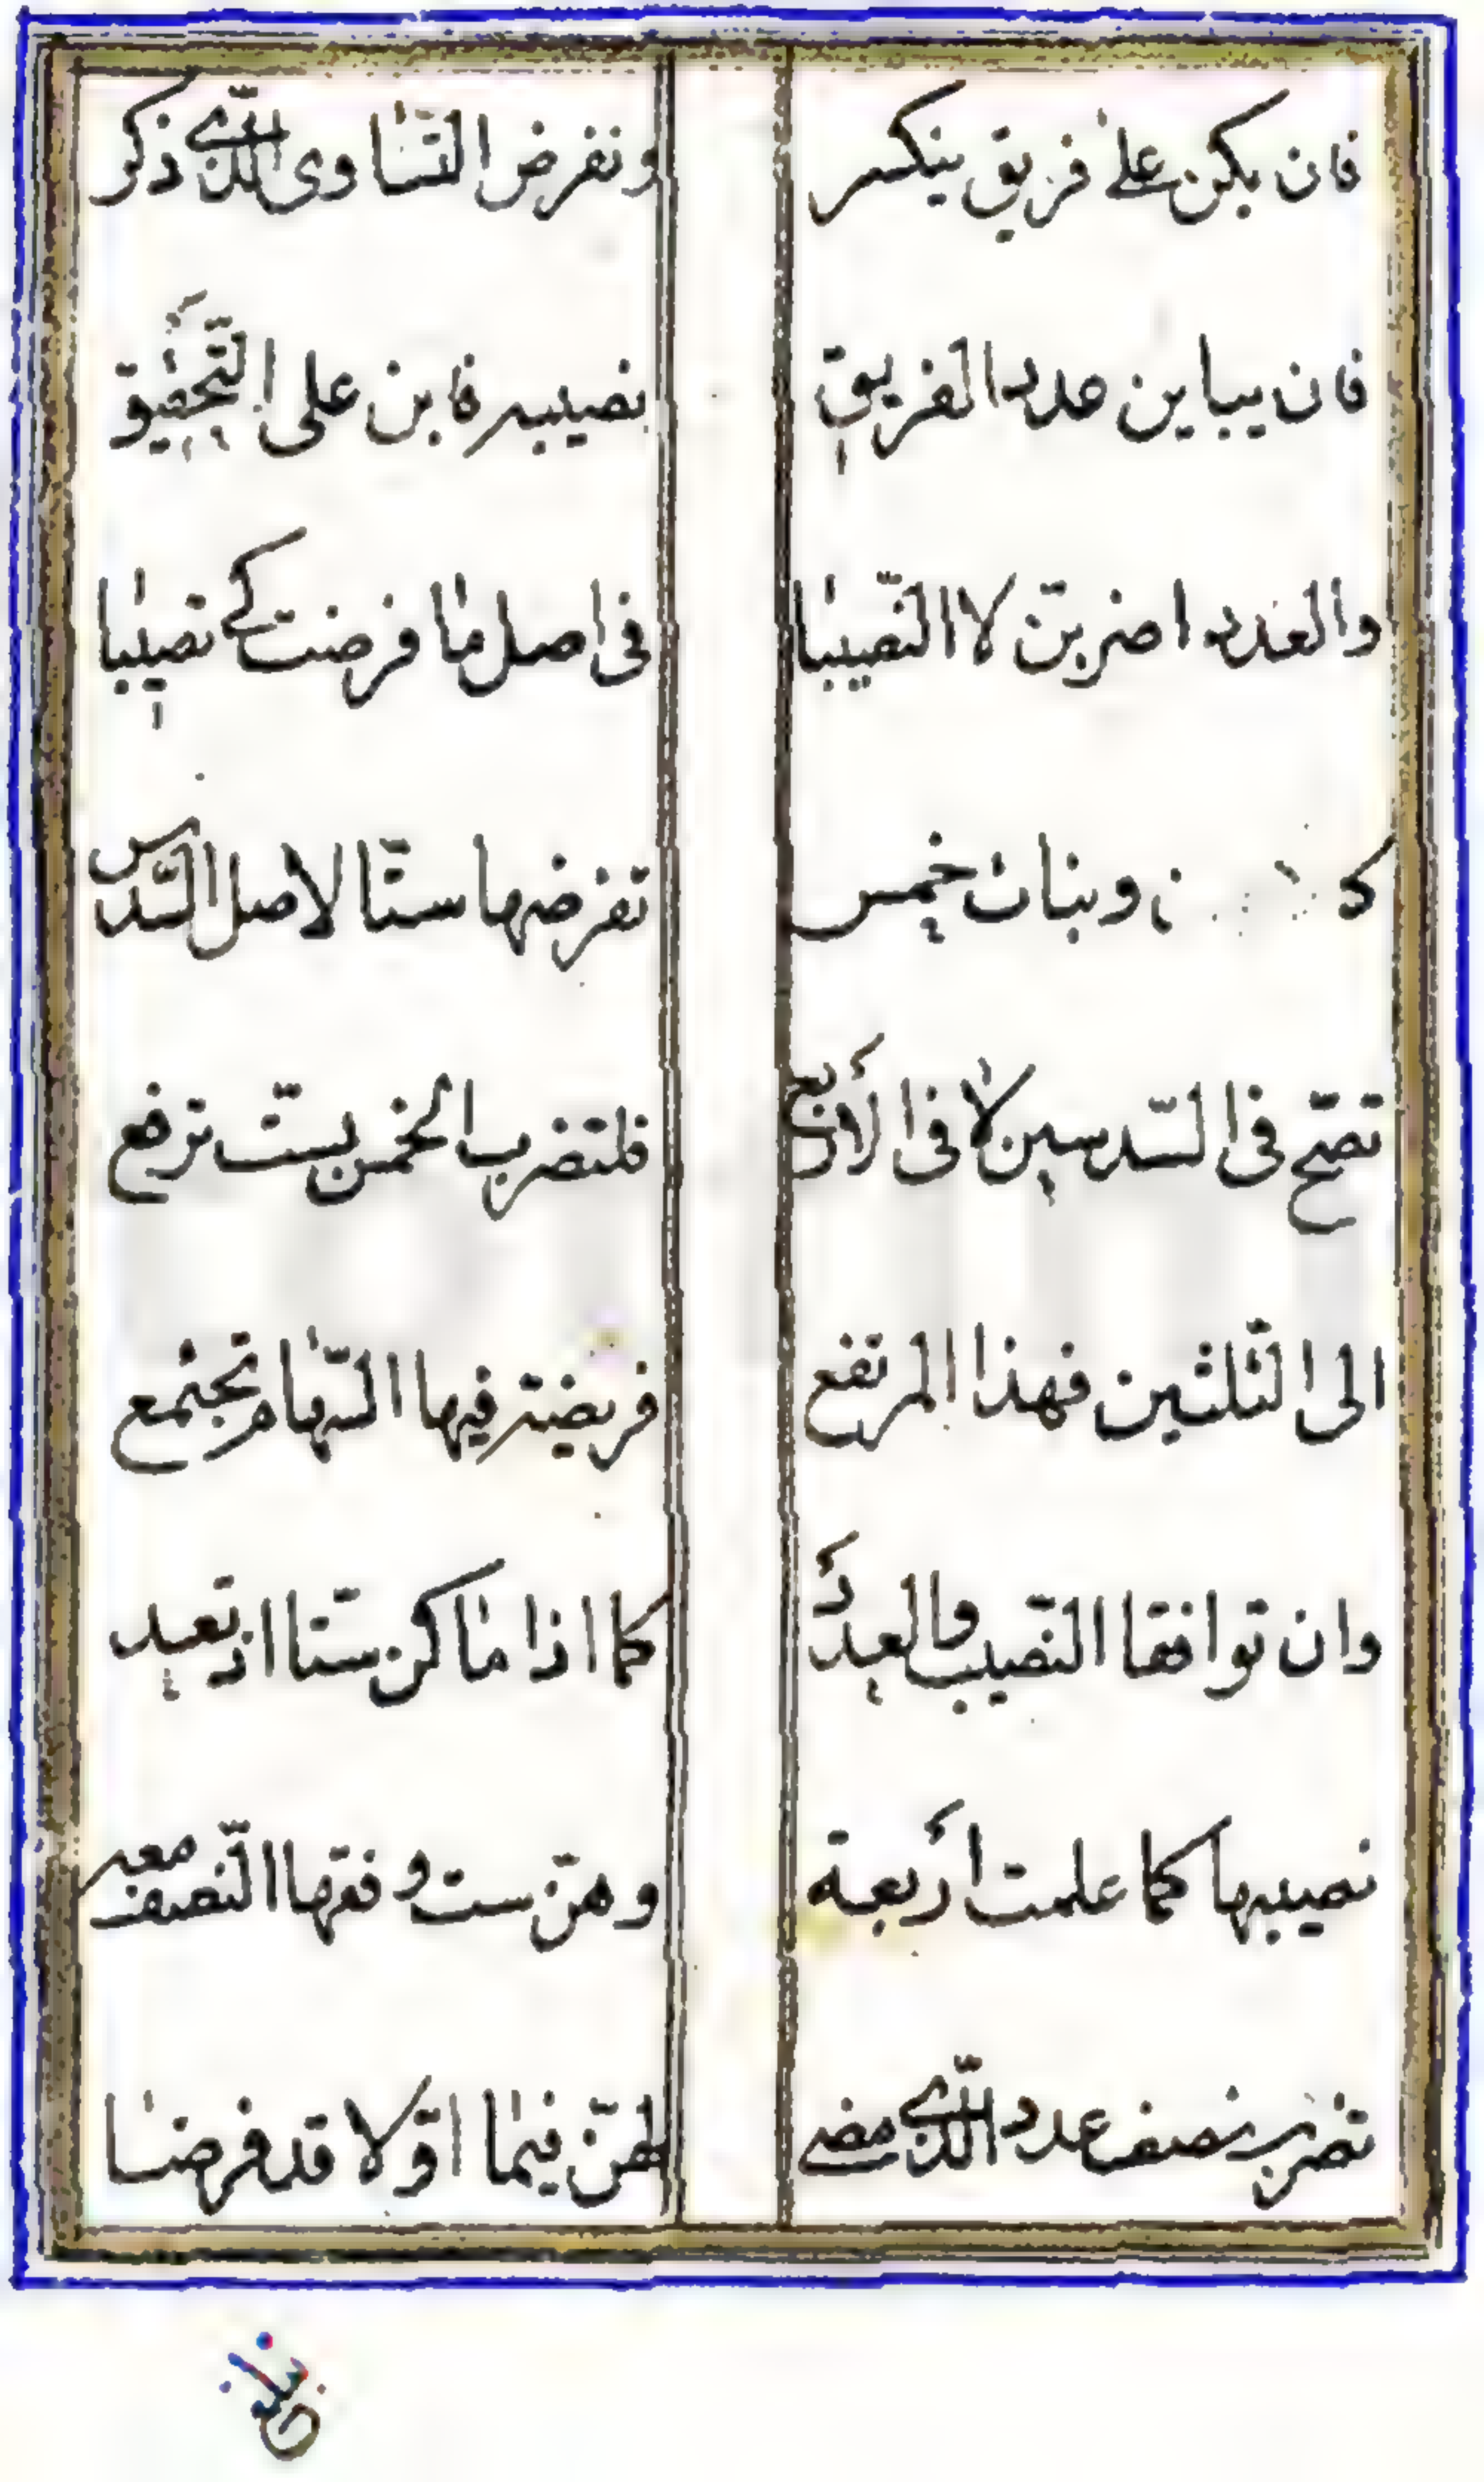 فان يكن على فريق ينكسر ونفرض التساوى الذى ذكر
فان يباين عدد الفريق نصيبه فابن على التحقيق
والعدد اضربنّ لا النّصيبا فى اصل ما فرضت كى تصيبا
وبنات خمس تفرضها ستّا لاصل السّدس
تصحّ فى السّدسين لا فى الأربع فلتضرب الخمس بستّ ترفع
الى الثّلثين فهذا المرتفع فريضة فيها السّهام تجتمع
وان توافقا النّصيب والعدد كما اذا ما كن ستّا اذ تعد
نصيبها كما علمت أربعة وهنّ ست وفقها النّصف معه
تضرب نصف عدد الّذى مضى لهنّ فيما اوّلا قد فرضا